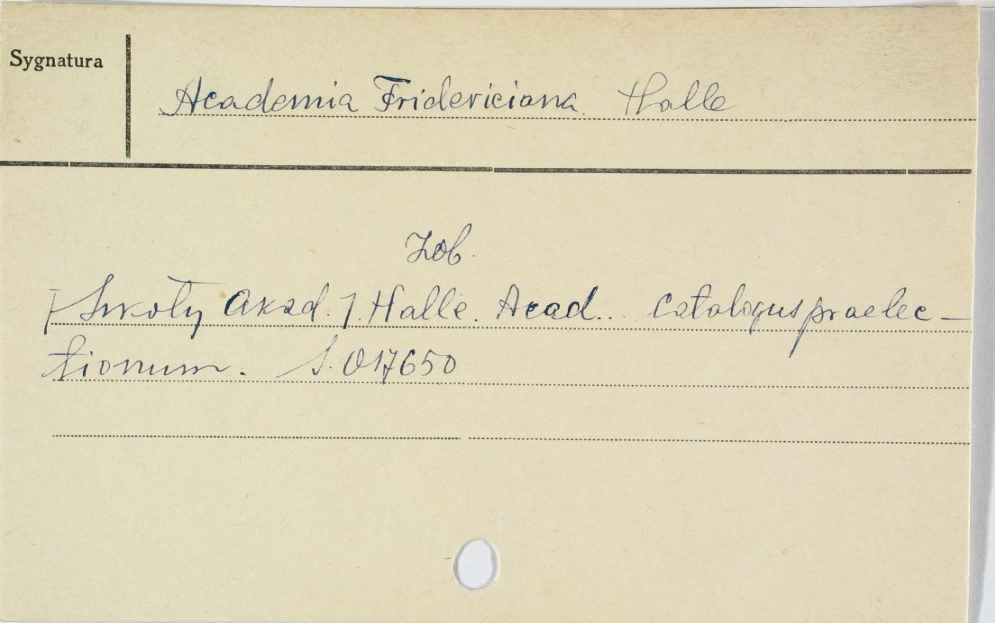 Sygnatura
Academia Fridericiana Halle
Zob.
[Szkoły Akad.] Halle. Acad... Catalogus praelec-
tionum. S. 017650